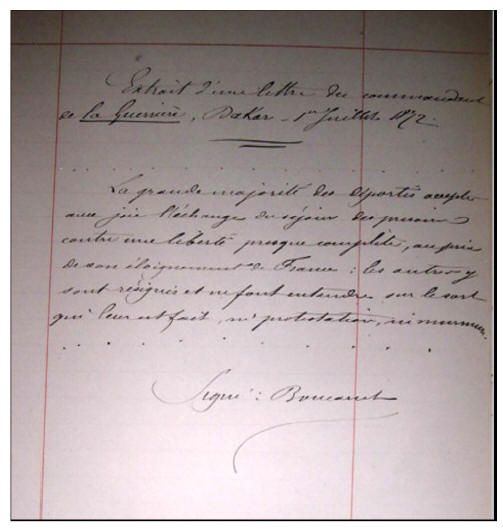 Extrait d'une lettre du commandant
de la Guerrière, Dakar - 1er Juillet 1872.
La grande majorité des déportés accepte
avec joie l'échange du séjour des prisons
contre une liberté presque complète, au prix
de son éloignement de France : les autres y
sont résignés et ne font entendre sur le sort
qui leur est fait, ni protestation, ni murmure.
Signé :